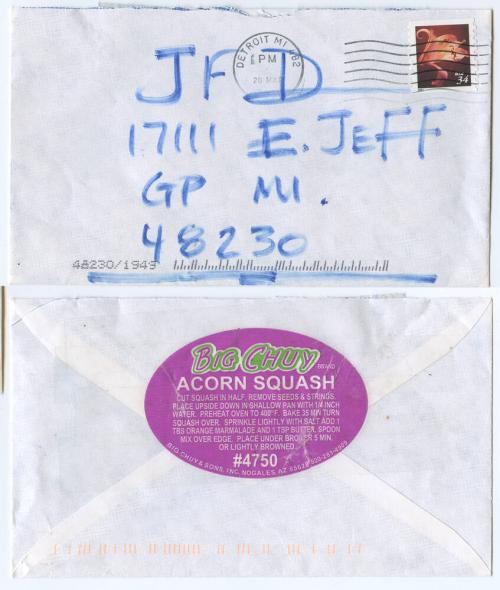 DETROIT MI 482
PM
20 MAR
USA
34
JFD
17111 E. JEFF
GP MI.
48230
48230/1949
BIG CHUY BRAND
ACORN SQUASH
CUT SQUASH IN HALF, REMOVE SEEDS & STRINGS.
PLACE UPSIDE DOWN IN SHALLOW PAN WITH 1/4 INCH
WATER. PREHEAT OVEN TO 400°F. BAKE 35 MIN TURN
SQUASH OVER. SPRINKLE LIGHTLY WITH SALT ADD 1
TBS ORANGE MARMALADE AND 1 TSP BUTTER, SPOON
MIX OVER EDGE. PLACE UNDER BROILER 5 MIN.
OR LIGHTLY BROWNED.
#4750
BIG CHUY & SONS, INC. NOGALES, AZ